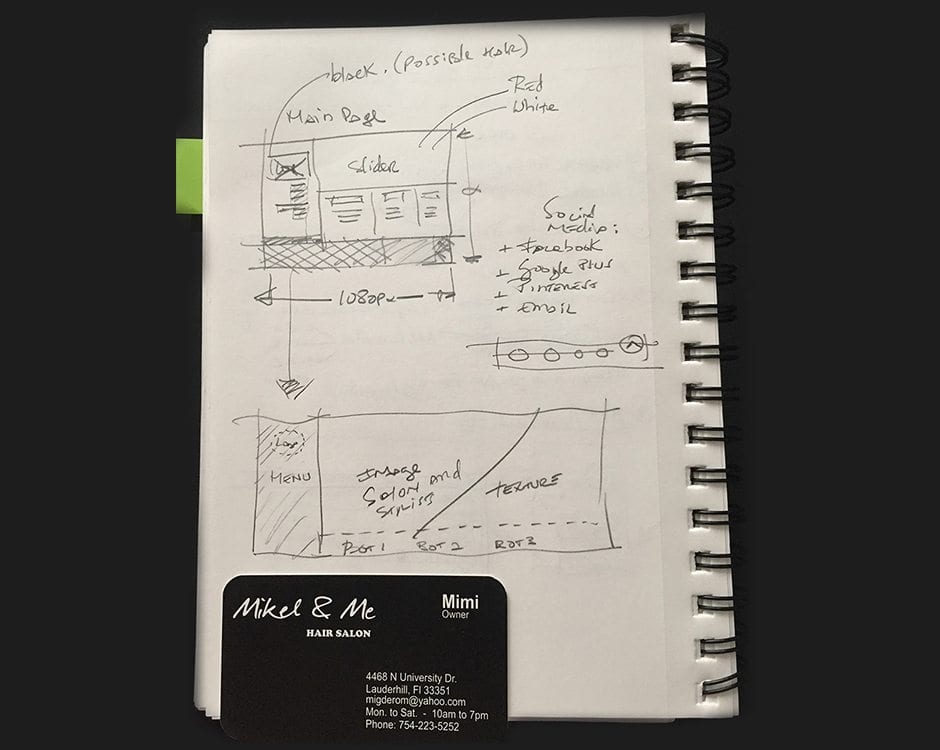 black. (Possible Hair)
Red
White
Main Page
Slider
1080px
Social
Media:
+ Facebook
+ Google Plus
+ Pinterest
+ Email
Logo
MENU
Image
Salon and
Stylists
TEXTURE
BOT 2
BOT 3
Mikel & Me
HAIR SALON
Mimi
Owner
4468 N University Dr.
Lauderhill, Fl 33351
migderom@yahoo.com
Mon. to Sat. - 10am to 7pm
Phone: 754-223-5252